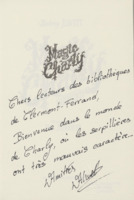 Magic
Charly
Chers lecteurs des bibliothèques
de Clermont-Ferrand,
Bienvenue dans le monde
de Charly, où les serpillières
ont très mauvais caractère.